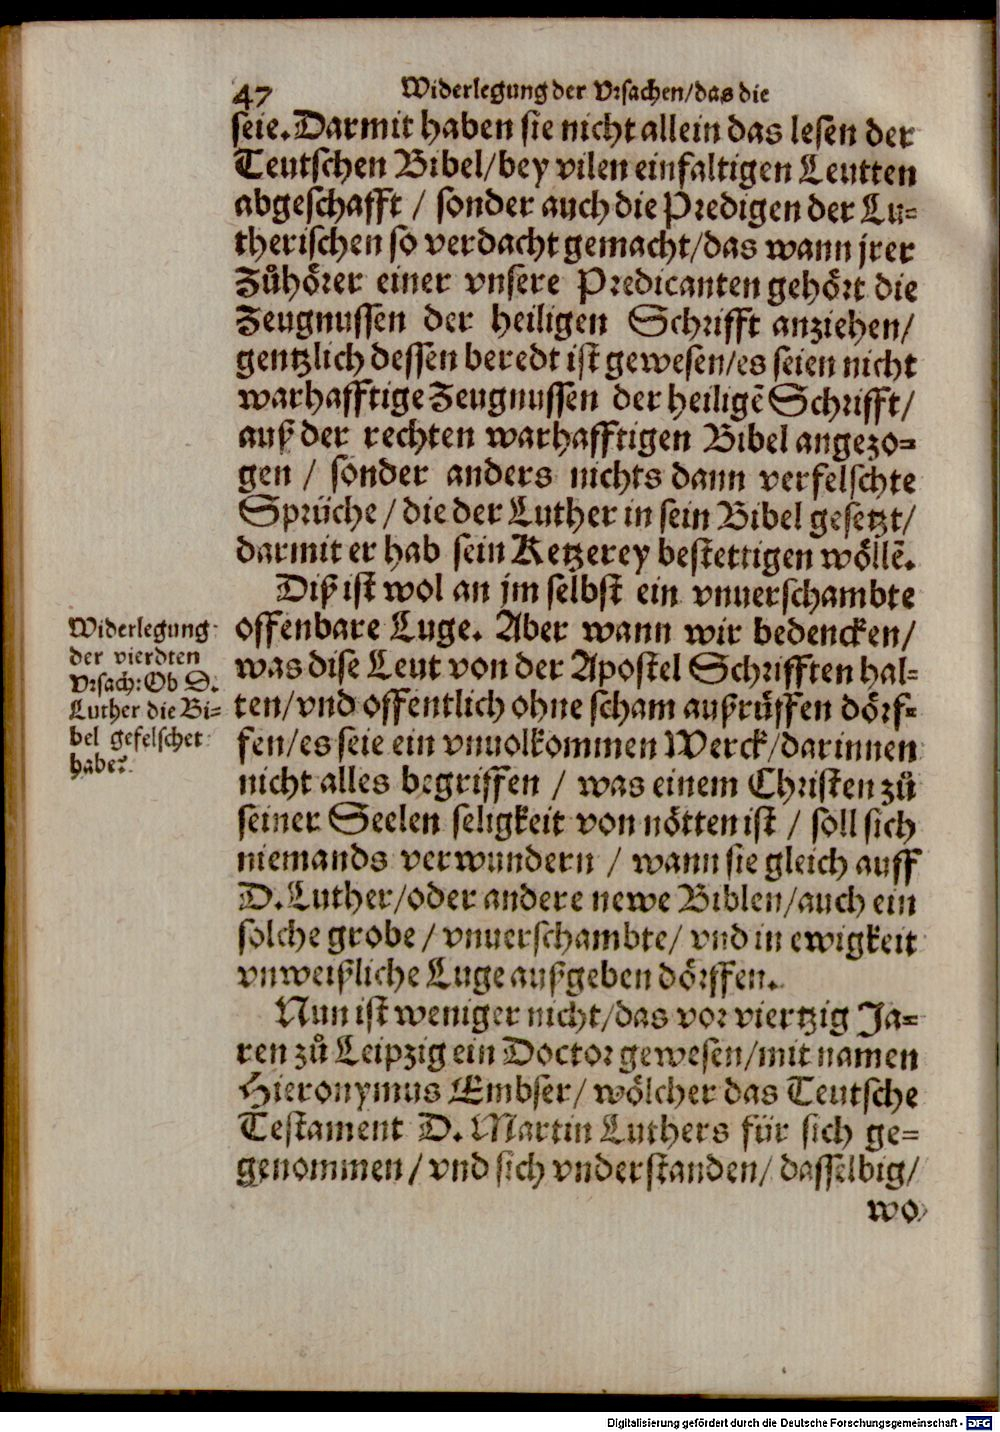 47 Widerlegung der Vrsachen/das die
seie. Darmit haben sie nicht allein das lesen der
Teutschen Bibel/bey vilen einfaltigen Leutten
abgeschafft / sonder auch die Predigen der Lu-
therischen so verdacht gemacht/das wann jrer
Zůhörer einer vnsere Predicanten gehört die
Zeugnussen der heiligen Schrifft anziehen/
gentzlich dessen beredt ist gewesen/es seien nicht
warhafftige Zeugnussen der heiligē Schrifft/
auß der rechten warhafftigen Bibel angezo-
gen / sonder anders nichts dann verfelschte
Sprüche / die der Luther in sein Bibel gesetzt/
darmit er hab sein Ketzerey bestettigen wöllē.
Diß ist wol an jm selbst ein vnuerschambte
offenbare Luge. Aber wann wir bedencken/
was dise Leut von der Apostel Schrifften hal-
ten/vnd offentlich ohne scham außrůffen dörf-
fen/es seie ein vnuolkommen Werck/darinnen
nicht alles begriffen / was einem Christen zů
seiner Seelen seligkeit von nötten ist / soll sich
niemands verwundern / wann sie gleich auff
D. Luther/oder andere newe Biblen/auch ein
solche grobe / vnuerschambte/ vnd in ewigkeit
vnweißliche Luge außgeben dörffen.
Widerlegung
der vierdten
Vrsach: Ob D.
Luther die Bi-
bel gefelschet
habe?
Nun ist weniger nicht/das vor viertzig Ja-
ren zů Leipzig ein Doctor gewesen/mit namen
Hieronymus Embser/ wölcher das Teutsche
Testament D. Martin Luthers für sich ge-
genommen / vnd sich vnderstanden/ dasselbig/
wo
Digitalisierung gefördert durch die Deutsche Forschungsgemeinschaft - DFG